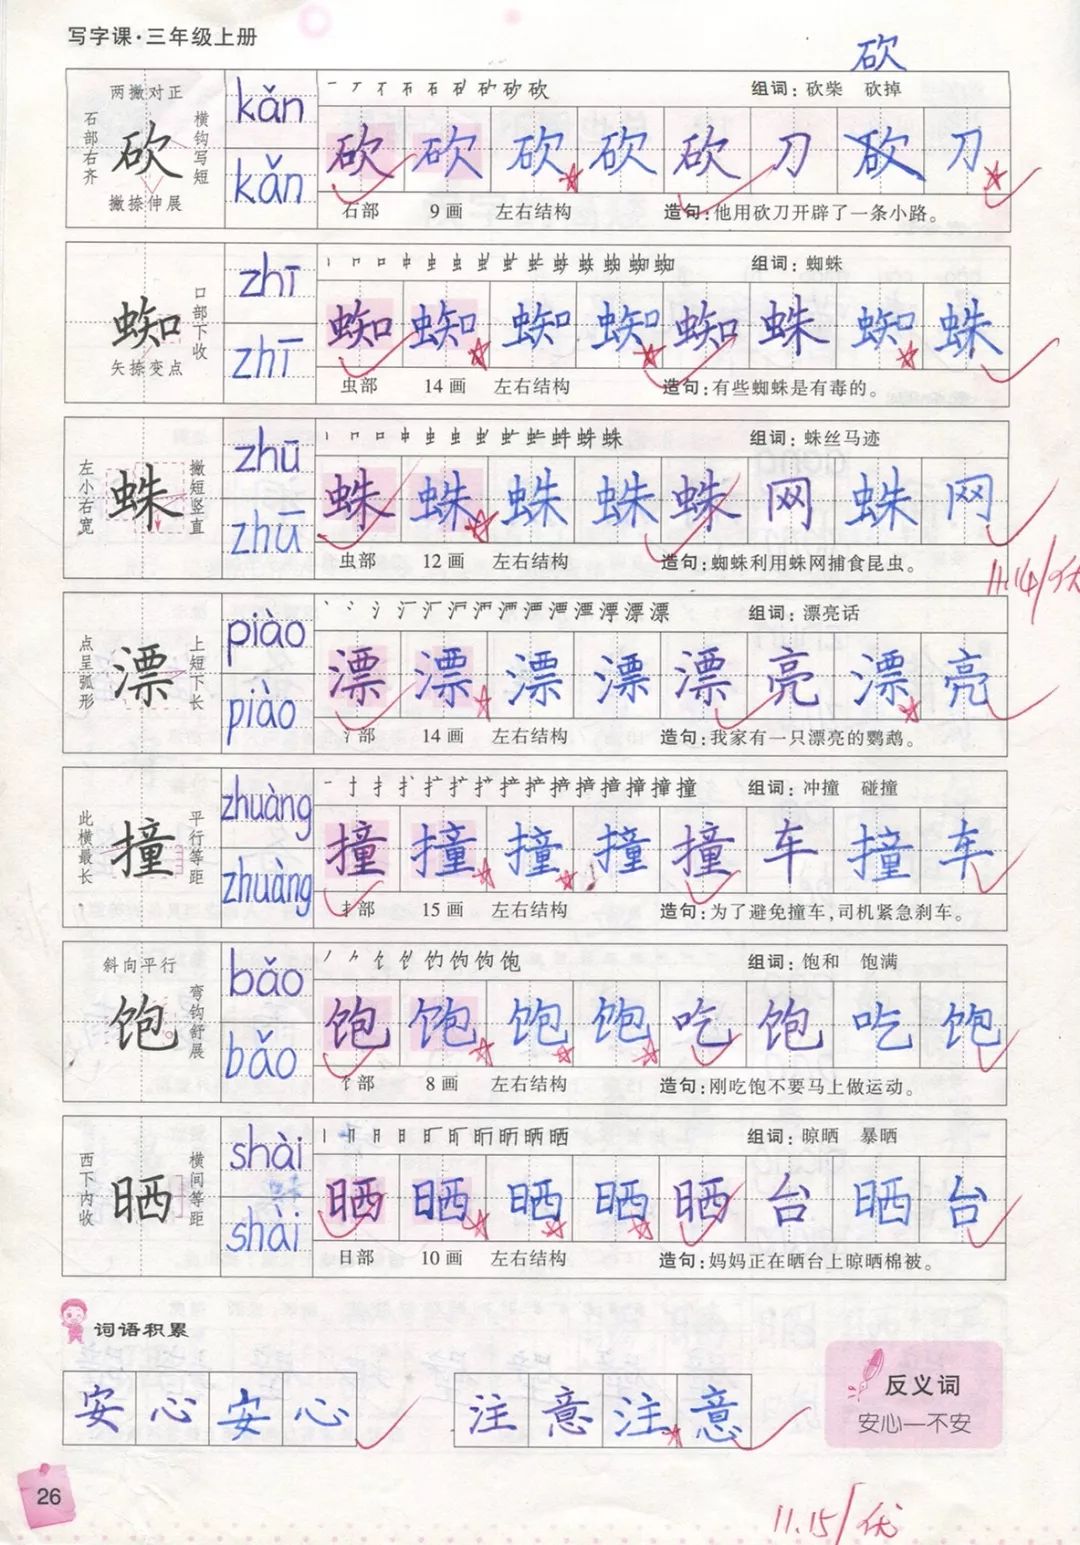 写字课·三年级上册
砍
两撇对正
石部右齐
砍
横钩写短
撇捺伸展
kǎn
kǎn
组词:砍柴 砍掉
砍 砍 砍 砍 砍 刀 砍 刀
石部 9画 左右结构 造句:他用砍刀开辟了一条小路。
蜘
口部下收
矢捺变点
zhī
zhī
组词:蜘蛛
蜘 蜘 蜘 蜘 蜘 蛛 蜘 蛛
虫部 14画 左右结构 造句:有些蜘蛛是有毒的。
左小右宽
蛛
撇短竖直
zhū
zhū
组词:蛛丝马迹
蛛 蛛 蛛 蛛 蛛 网 蛛 网
虫部 12画 左右结构 造句:蜘蛛利用蛛网捕食昆虫。
11.14/优
点呈弧形
漂
上短下长
piào
piào
组词:漂亮话
漂 漂 漂 漂 漂 亮 漂 亮
氵部 14画 左右结构 造句:我家有一只漂亮的鹦鹉。
此横最长
撞
平行等距
zhuàng
zhuàng
组词:冲撞 碰撞
撞 撞 撞 撞 撞 车 撞 车
扌部 15画 左右结构 造句:为了避免撞车,司机紧急刹车。
斜向平行
饱
弯钩舒展
bǎo
bǎo
组词:饱和 饱满
饱 饱 饱 饱 吃 饱 吃 饱
饣部 8画 左右结构 造句:刚吃饱不要马上做运动。
西下内收
晒
横间等距
shài
shài
组词:晾晒 暴晒
晒 晒 晒 晒 晒 台 晒 台
日部 10画 左右结构 造句:妈妈正在晒台上晾晒棉被。
词语积累
安心安心
注意注意
反义词
安心—不安
26
11.15/优